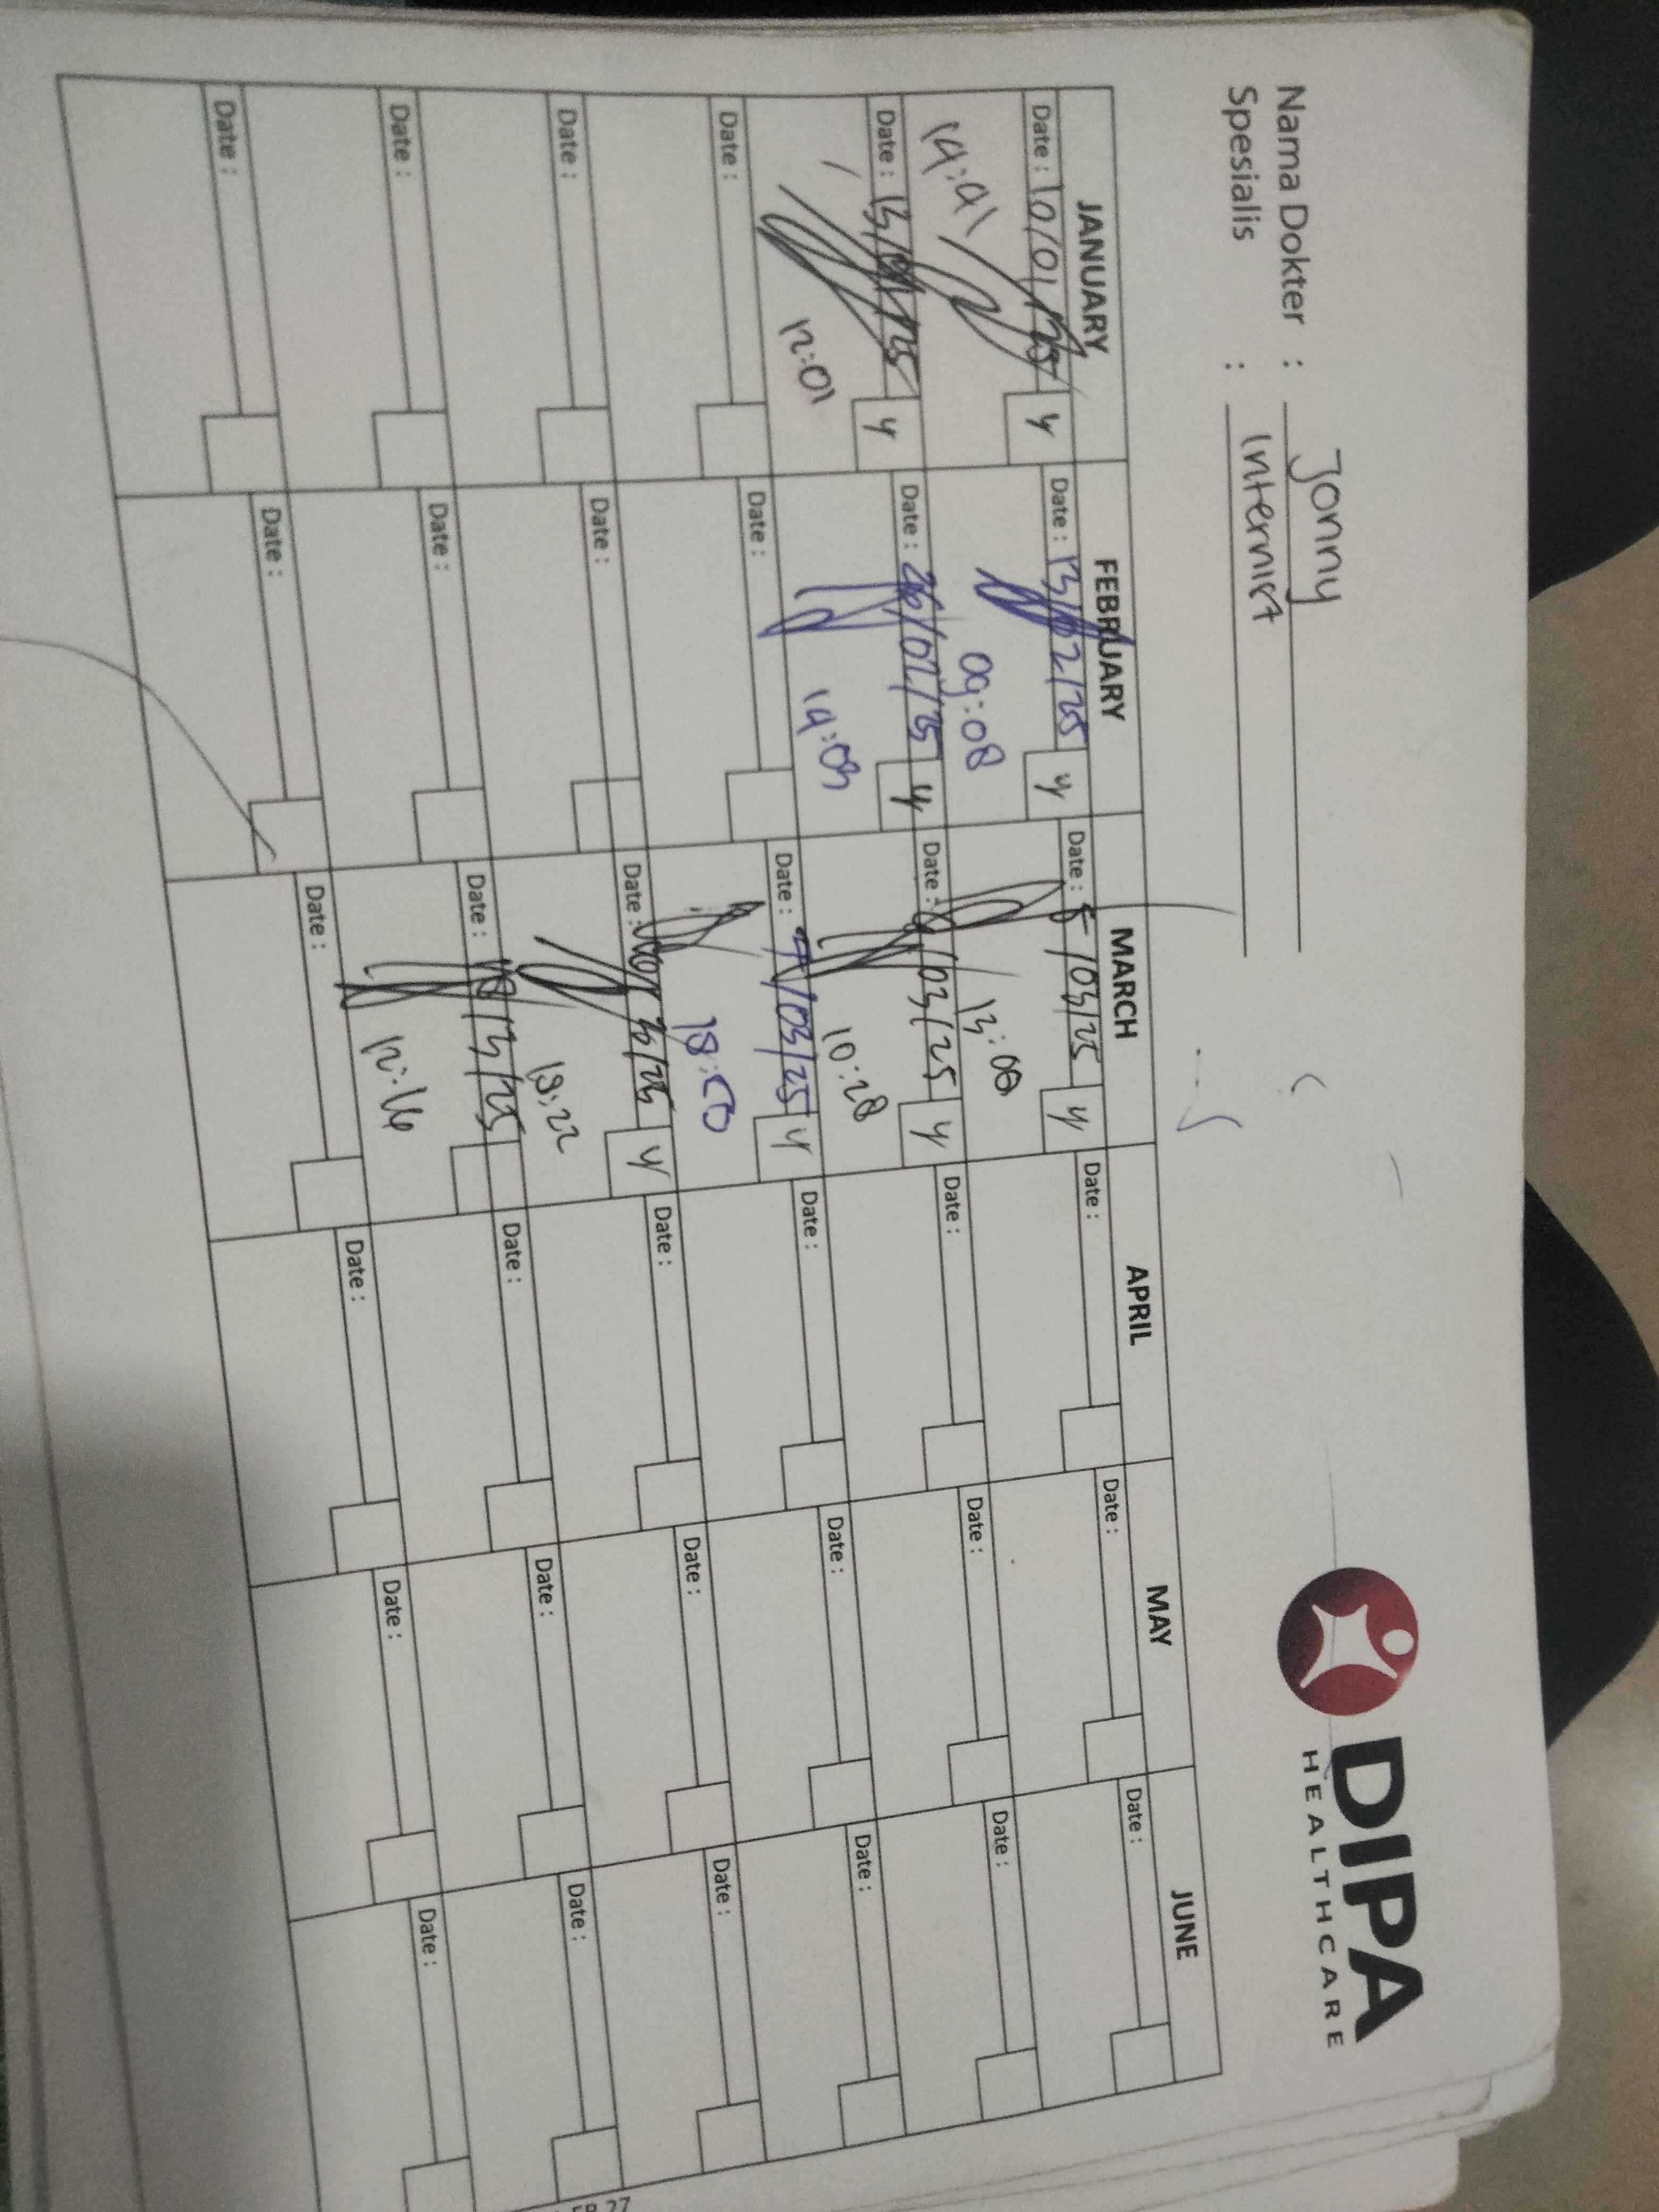 DIPA
HEALTHCARE
Nama Dokter : Jonny
Spesialis : Internist
JANUARY FEBRUARY MARCH APRIL MAY JUNE
Date : 10/01/25 4 Date : 13/02/25 4 Date : 5/03/25 4 Date : Date : Date :
09:08 13:08
Date : 13/01/25 4 Date : 26/02/25 4 Date : /03/25 4 Date : Date : Date :
12:01 14:03 10:28
Date : Date : Date : 7/03/25 4 Date : Date : Date :
Date : Date : Date : 3/25 4 Date : Date : Date :
18:22
Date : Date : Date : /3/25 Date : Date : Date :
12:16
Date : Date : Date : Date : Date : Date :